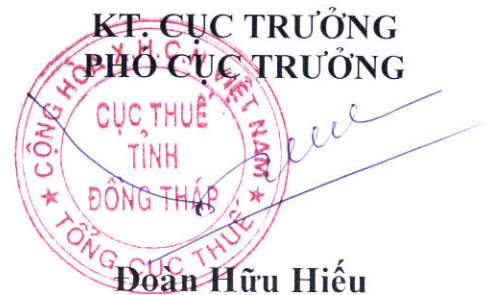 KT. CỤC TRƯỞNG
PHÓ CỤC TRƯỞNG
CỘNG HÒA X.H.C.N VIỆT NAM
CỤC THUẾ
TỈNH
ĐỒNG THÁP
★ TỔNG CỤC THUẾ ★
Đoàn Hữu Hiếu